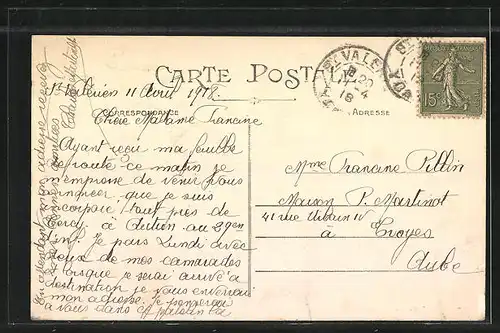 CARTE POSTALE
CORRESPONDANCE
ADRESSE
ST VALE
15c
St Valerien 11 Avril 1918.
Chère Madame Francine
Ayant reçu ma feuille
de route ce matin je
m'empresse de venir vous
que je suis
tout près de
à Autun au 29em
Inf. Je pars Lundi avec
deux de mes camarades
Lorsque je serai arrivé à
destination je vous enverrai
mon adresse. Je penserai
à vous dans
mon adresse
Mme Francine Pillin
Maison P. Martinot
41 rue
à Troyes
Aube